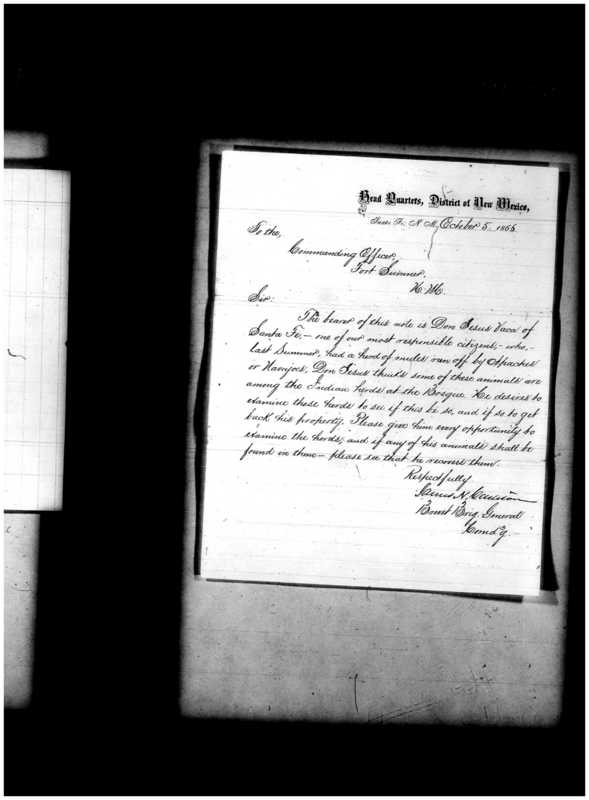 Head Quarters, District of New Mexico,
Santa Fe, N. M. October 5. 1865.
To the,
Commanding Officer,
Fort Sumner.
N. M.
Sir.
The bearer of this note is Don Jesus Vaca of
Santa Fe,— one of our most responsible citizens,— who,—
last Summer, had a herd of mules run off by Apaches
or Navajoes. Don Jesus thinks some of these animals are
among the Indian herds at the Bosque. He desires to
examine those herds to see if this be so, and if so to get
back his property. Please give him every opportunity to
examine the herds, and if any of his animals shall be
found in them— please see that he recovers them.
Respectfully
James H. Carleton
Brevet Brig. General
Comd'g.